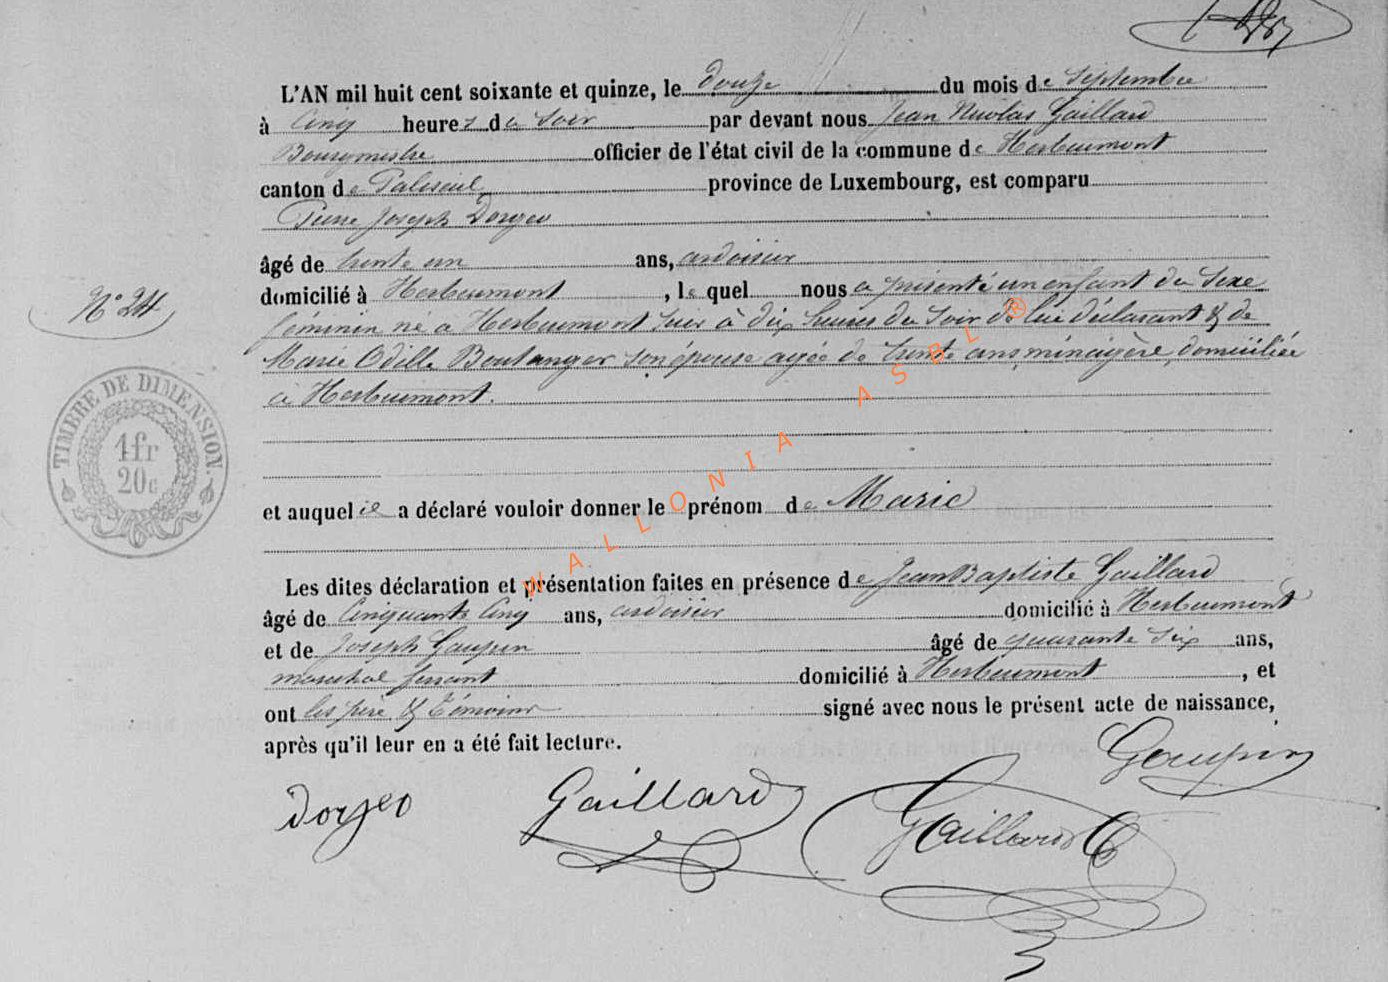 L'AN mil huit cent soixante et quinze, le douze du mois de Septembre
à Cinq heures du Soir par devant nous Jean Nicolas Gaillard
Bourgmestre officier de l'état civil de la commune de Herbeumont
canton de Paliseul province de Luxembourg, est comparu
Pierre Joseph Dorgeo
âgé de trente un ans, ardoisier
N° 24
domicilié à Herbeumont, le quel nous a présenté un enfant du Sexe
feminin né à Herbeumont hier à dix heures du Soir de lui déclarant & de
Marie Odille Boulanger son épouse agée de trente ans, ménagère, domiciliée
à Herbeumont.
TIMBRE DE DIMENSION.
1fr
20c
et auquel il a déclaré vouloir donner le prénom de Marie
Les dites déclaration et présentation faites en présence de Jean Baptiste Gaillard
âgé de Cinquante Cinq ans, ardoisier domicilié à Herbeumont
et de Joseph Goupin âgé de quarante Six ans,
maréchal ferrant domicilié à Herbeumont, et
ont les père & témoins signé avec nous le présent acte de naissance,
après qu'il leur en a été fait lecture.
Goupin
Dorgeo Gaillard Gaillard
WALLONIA ASBL ®